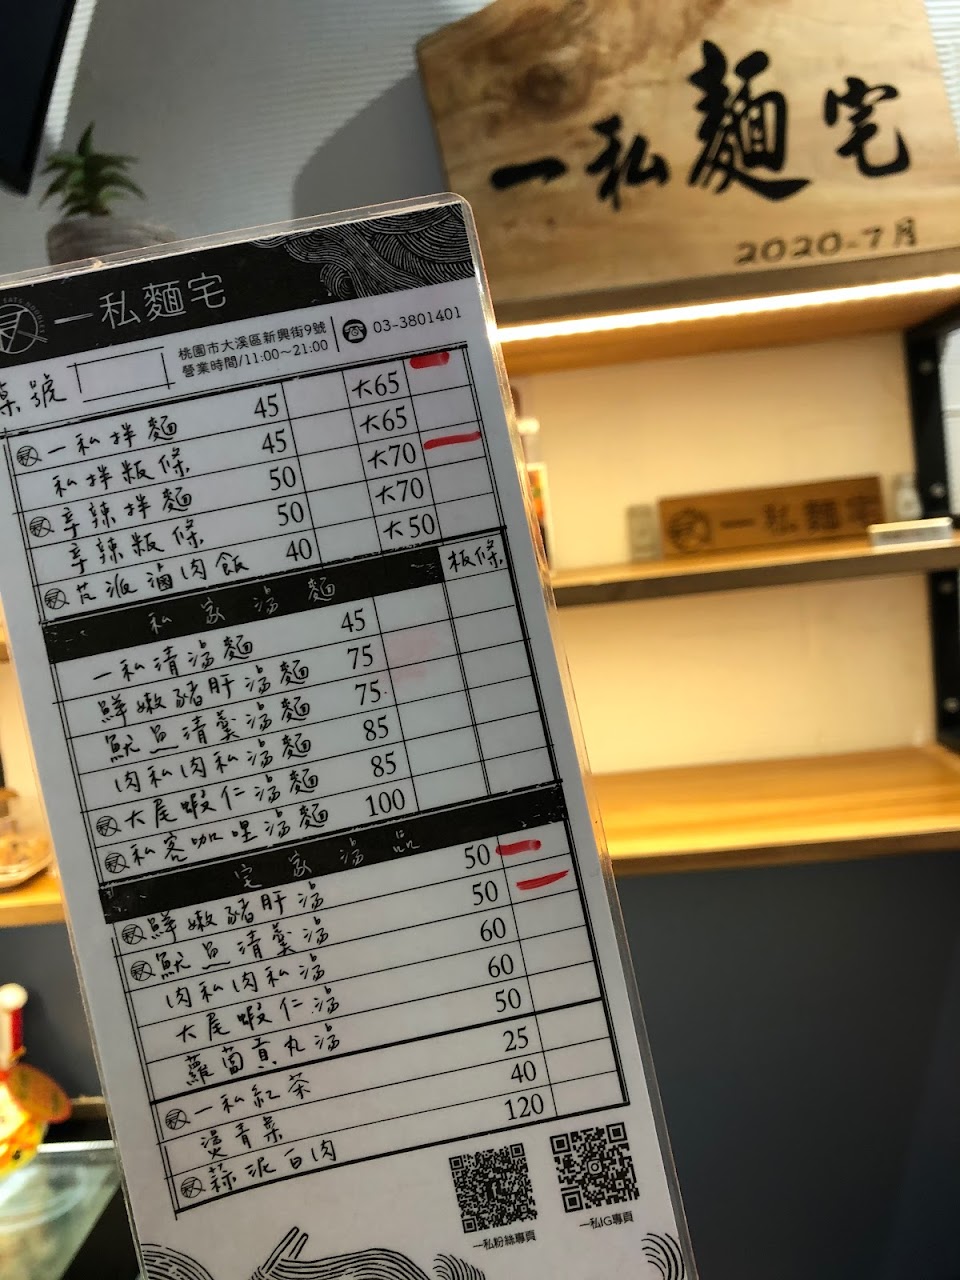 一私麵宅
2020-7月
一私麵宅
一私麵宅
桃園市大溪區新興街9號
營業時間/11:00~21:00
03-3801401
桌號
一私拌麵 45 大65
私拌粄條 45 大65
辛辣拌麵 50 大70
辛辣粄條 50 大70
古派滷肉飯 40 大50
私家湯麵 板條
一私清湯麵 45
鮮嫩豬肝湯麵 75
魷魚清羹湯麵 75
肉私肉私湯麵 85
大尾蝦仁湯麵 85
私客咖哩湯麵 100
宅家湯品
鮮嫩豬肝湯 50
魷魚清羹湯 50
肉私肉私湯 60
大尾蝦仁湯 60
蘿蔔貢丸湯 50
一私紅茶 25
燙青菜 40
蒜泥白肉 120
一私粉絲專頁
一私IG專頁